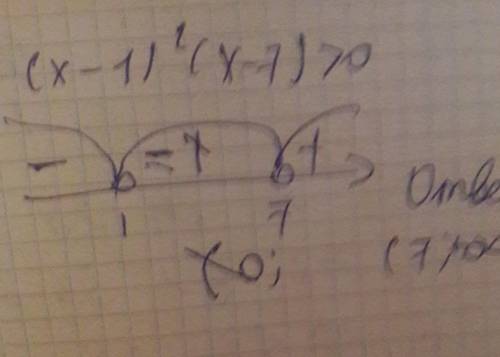 (x-1)²(x-7)>0
- = + +
1 7
(-0;
(7;+∞